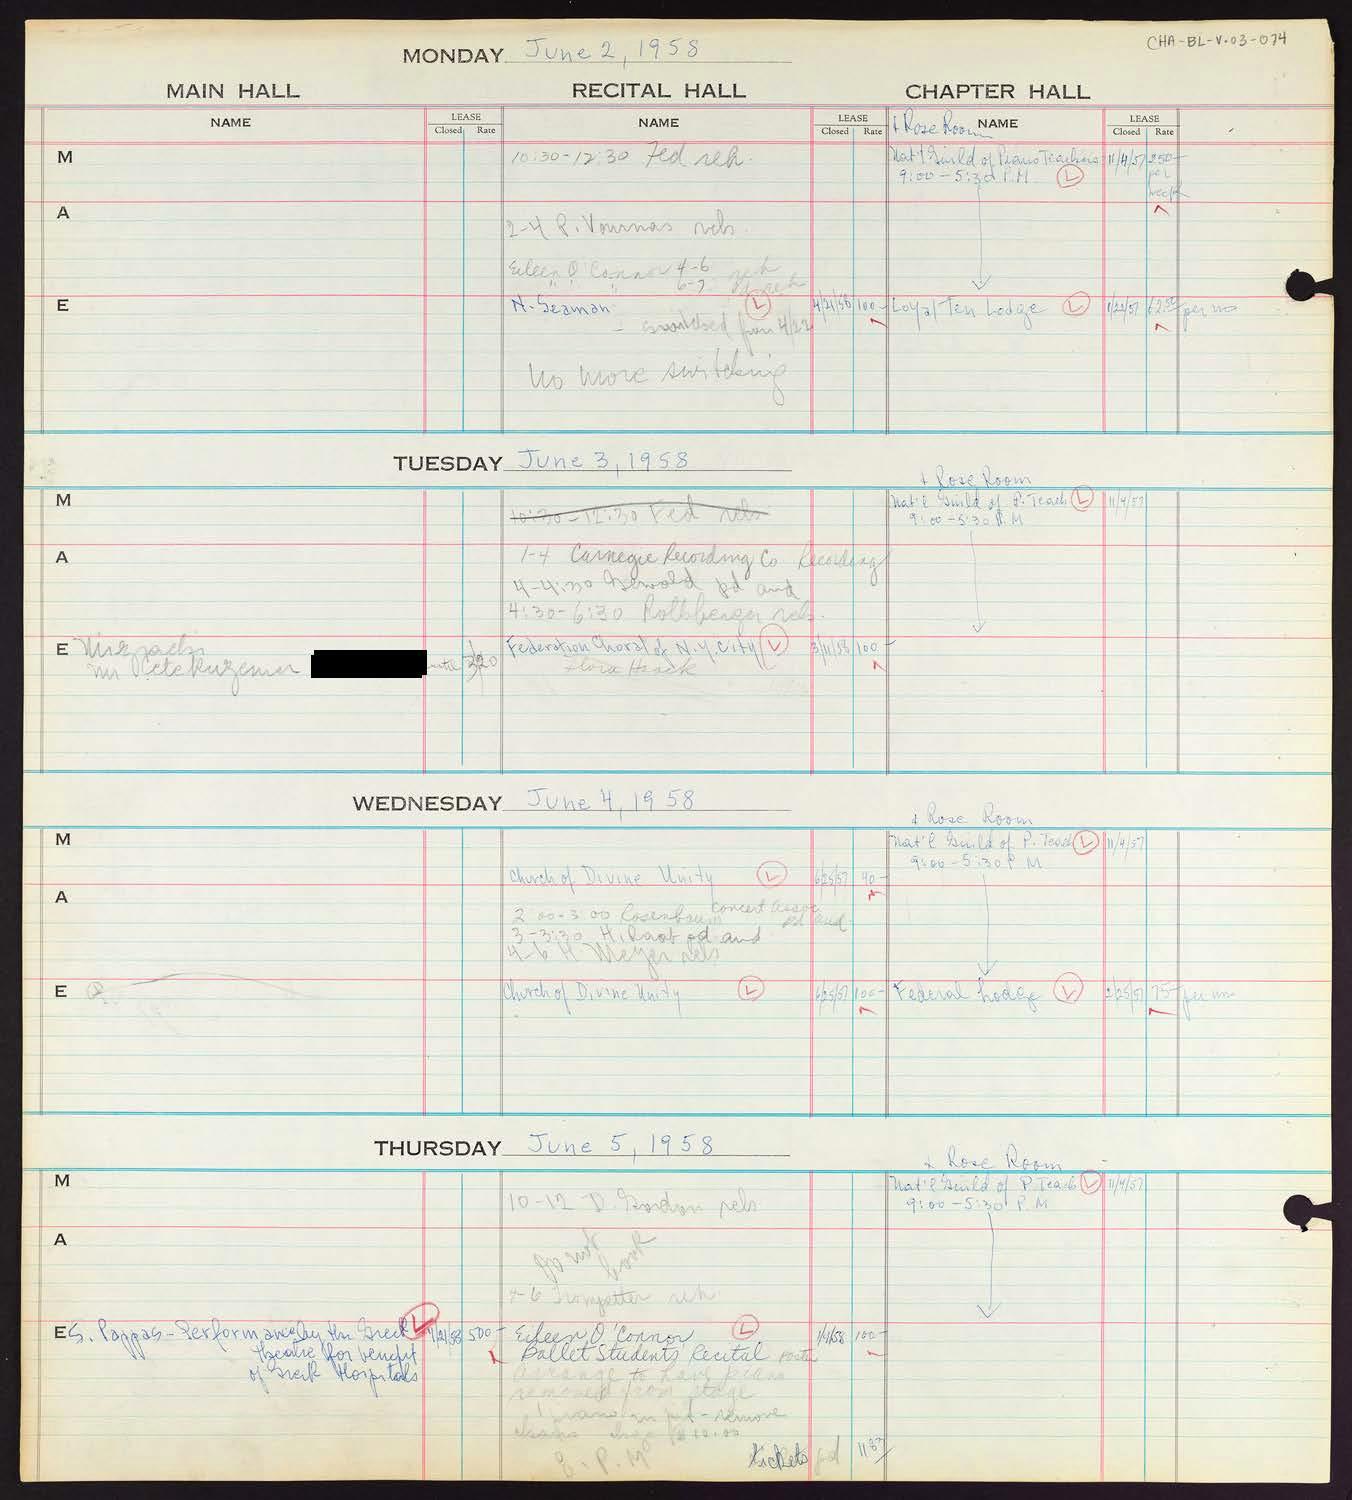 CHA-BL-V.03-074
MONDAY June 2, 1958
MAIN HALL RECITAL HALL CHAPTER HALL
NAME LEASE Closed Rate NAME LEASE Closed Rate + Rose Room NAME LEASE Closed Rate
M 10:30-12:30 Fed reh. Nat'l Guild of Piano Teachers 11/4/57 250- per week
9:00-5:30 P.M. L
A
2-4 P. Vournas rehs.
Eileen O'Connor 4-6 reh
" " " 6-7
E N. Seaman L 4/21/58 100- Loyal Ten Lodge L 1/22/57 62.50 per mo
- switched from 4/22
No more switching
TUESDAY June 3, 1958
+ Rose Room
M 10:30-12:30 Fed rehs Nat'l Guild of P. Teach L 11/4/57
9:00-5:30 P.M
A 1-4 Carnegie Recording Co Recording
4-4:30 pd aud
4:30-6:30 rehs.
E Federation Choral of N.Y. City L 3/11/58 100-
Mr Pete
Flora Haack
WEDNESDAY June 4, 1958
+ Rose Room
M Nat'l Guild of P. Teach L 11/4/57
9:00-5:30 P M
Church of Divine Unity L 6/25/57 90-
A
2 00-3 00 Rosenbaum Concert Assoc pd aud
3-3:30 H. pd aud
4-6 H Meyer rehs
E Church of Divine Unity L 6/25/57 100- Federal Lodge L 2/25/57 75- per mo
THURSDAY June 5, 1958
+ Rose Room
M Nat'l Guild of P. Teach L 11/4/57
10-12 D. Gordon rehs 9:00-5:30 P.M
A
4-6 Trompetter reh
E S. Pappas - Performance by the Greek L 4/21/58 500- Eileen O'Connor L 1/1/58 100-
theatre for benefit Ballet Students Recital
of Greek Hospitals
arrange to have piano
removed from stage
1 piano in pit - remove
chairs chge $10.00
8 P.M
tickets pd 11 87